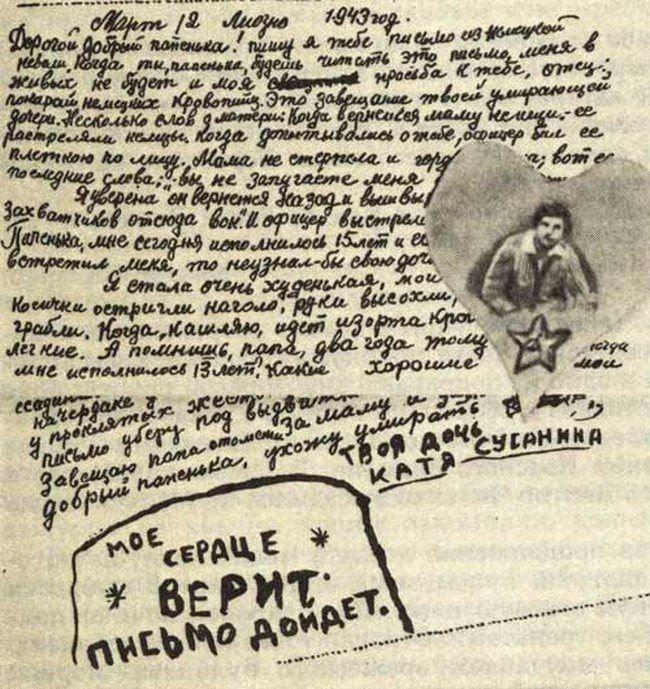 Март 12 Лиозно 1943 год.
Дорогой добрый папенька! пишу я тебе письмо из немецкой
неволи. Когда ты, папенька, будешь читать это письмо, меня в
живых не будет и моя просьба к тебе, отец:
покарай немецких кровопийц. Это завещание твоей умирающей
дочери. Несколько слов о матери. Когда вернешься маму не ищи. ее
расстреляли немцы. когда допытывались о тебе, офицер бил ее
плеткою по лицу. Мама не стерпела и гордо вот ее
последние слова: "вы не запугаете меня
Я уверена он вернется назад и вышвы
захватчиков отсюда вон." И офицер выстрел
Папенька, мне сегодня исполнилось 15 лет и ес
встретил меня, то неузнал-бы свою доч
Я стала очень худенькая, мои
косички остригли наголо, руки высохли,
грабли. Когда кашляю, идет изорта кро
легкие. А помнишь, папа, два года тому когда
мне исполнилось 13 лет? Какие хорошие мои
ссади
на чердаке у
у проклятых жест
письмо уберу под
Завещаю папа отомсти за маму и
добрый папенька, ухожу умирать
ТВОЯ ДОЧЬ
КАТЯ СУСАНИНА
МОЕ
СЕРДЦЕ
ВЕРИТ.
ПИСЬМО ДОЙДЕТ.